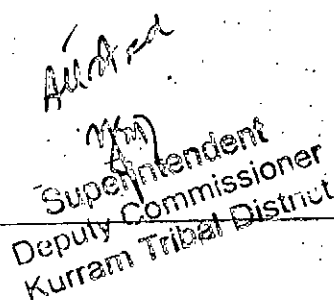 Attested
Superintendent
Deputy Commissioner
Kurram Tribal District